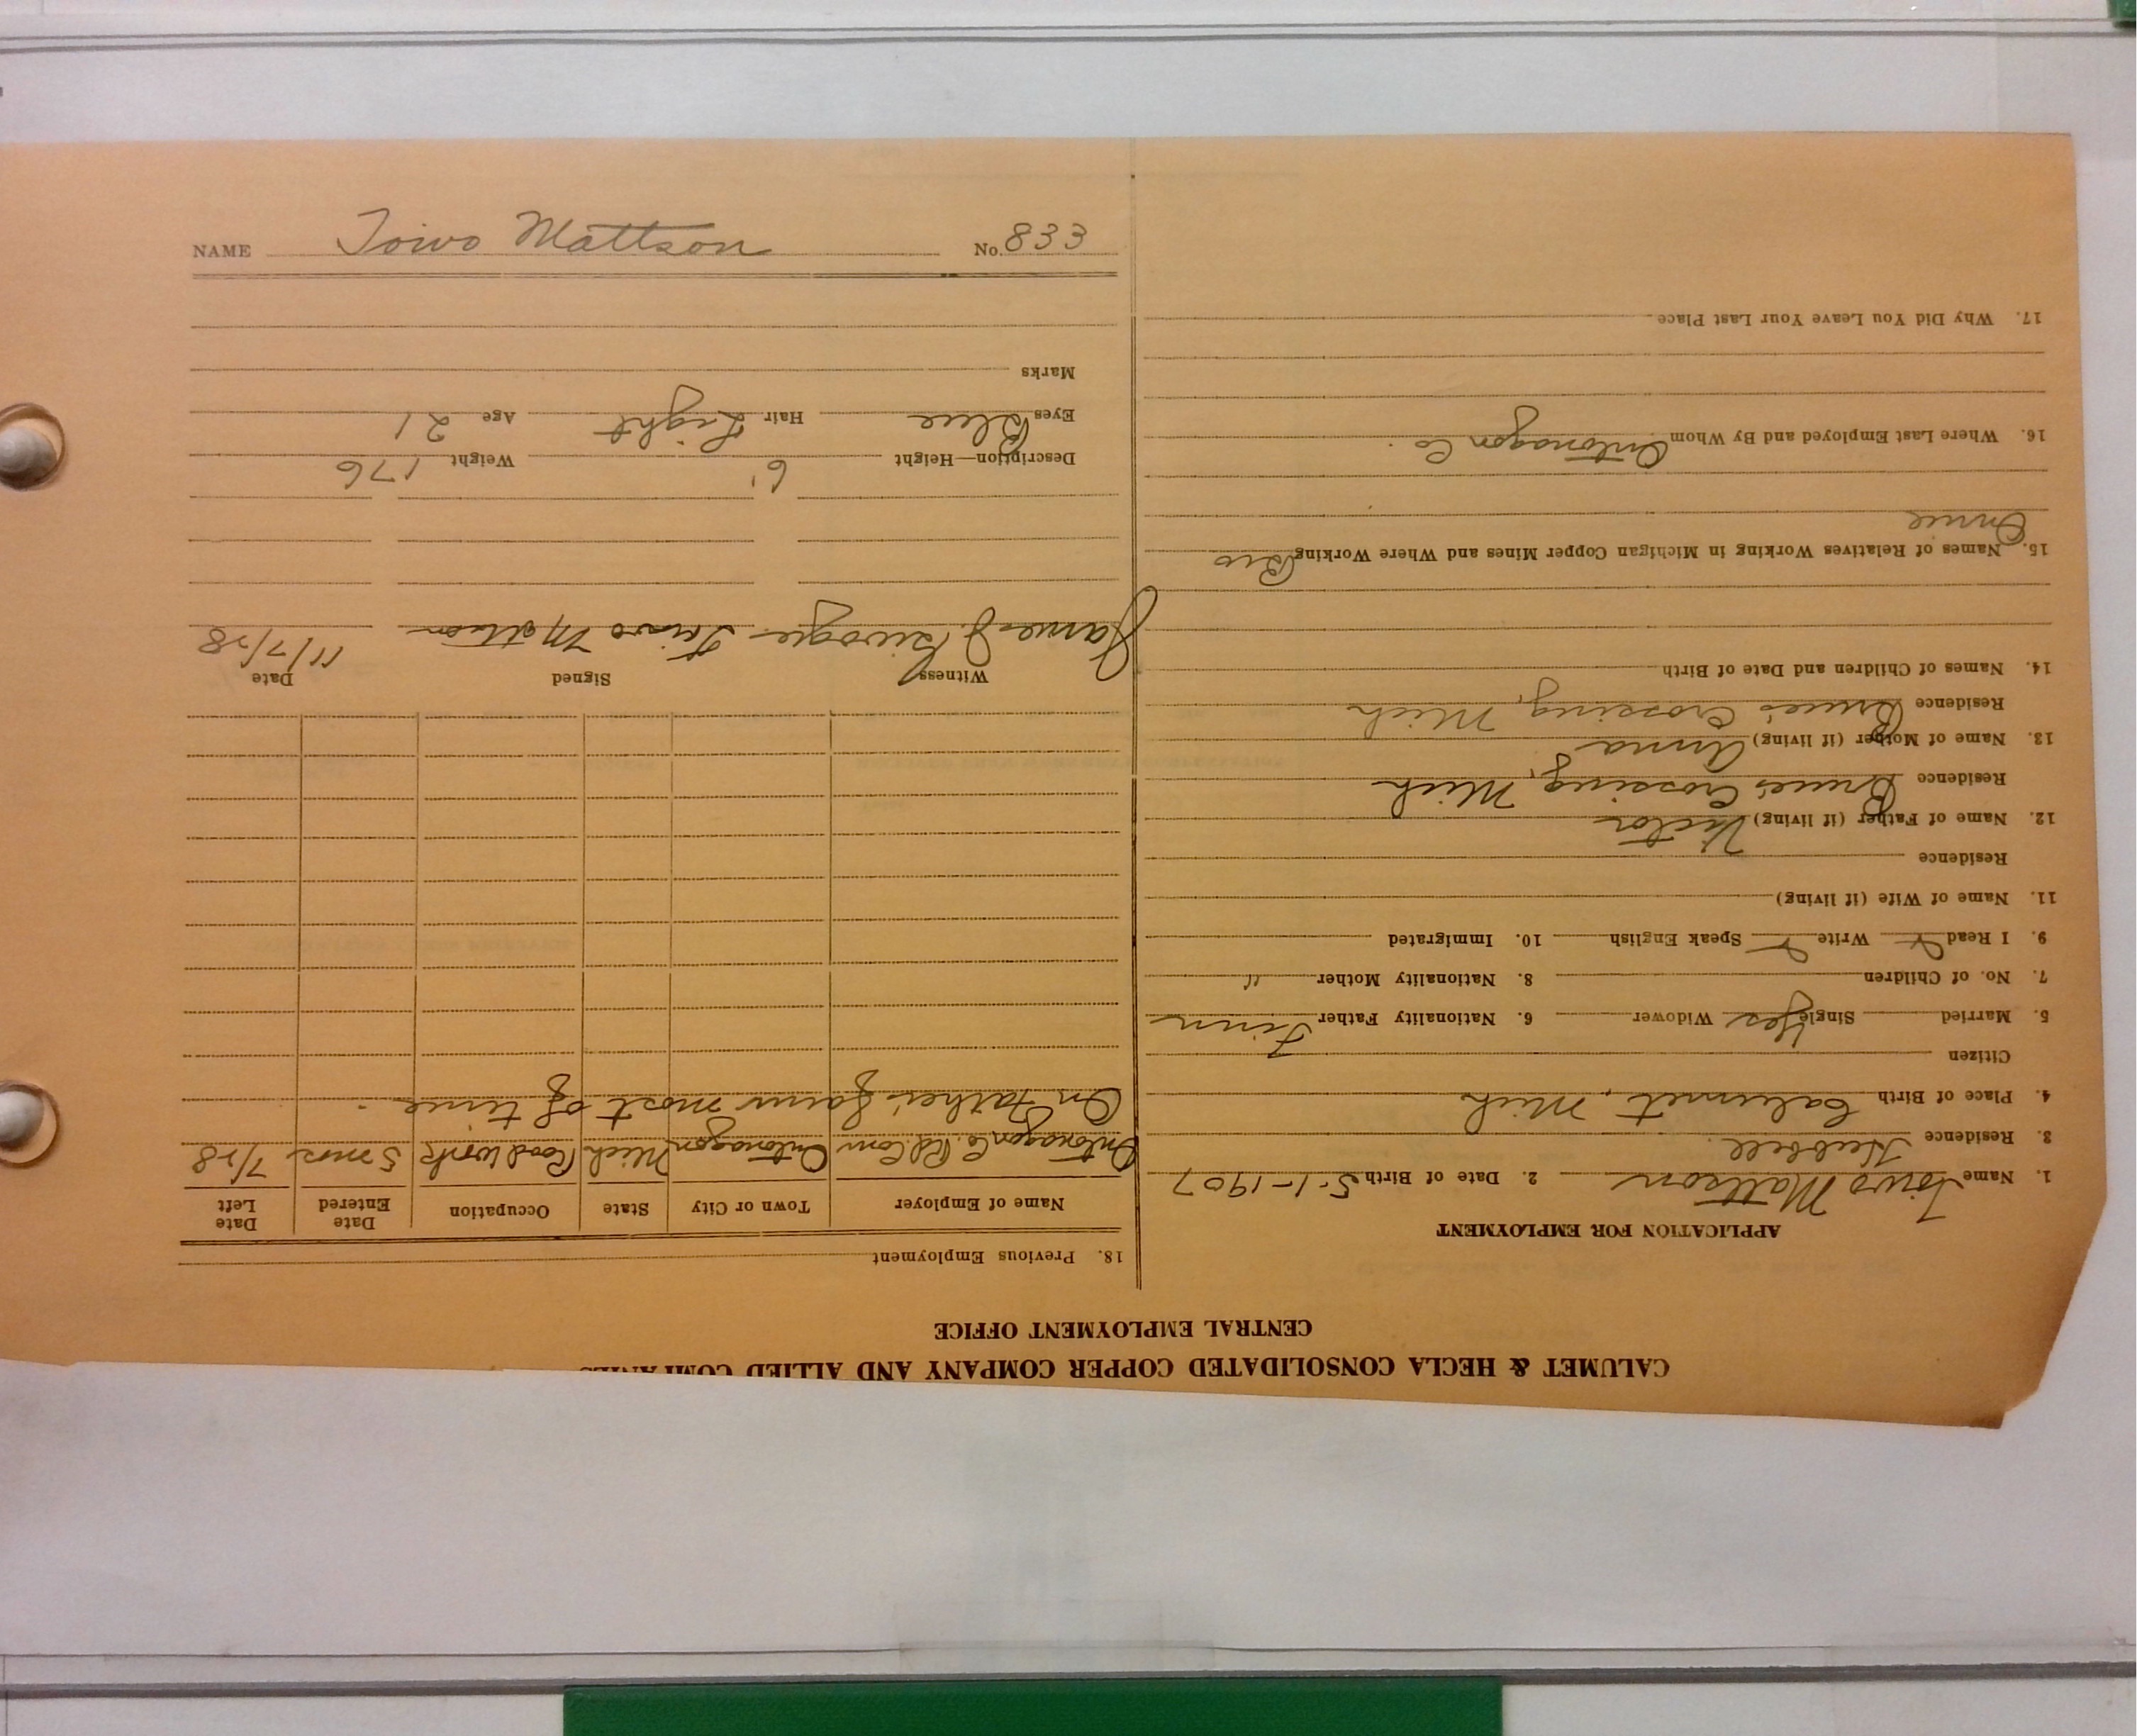 CALUMET & HECLA CONSOLIDATED COPPER COMPANY AND ALLIED COMPANIES
CENTRAL EMPLOYMENT OFFICE
APPLICATION FOR EMPLOYMENT
1. Name Toivo Mattson 2. Date of Birth 5-1-1907
3. Residence Hubbell.
4. Place of Birth Calumet, Mich
Citizen
5. Married Single Yes Widower 6. Nationality Father Finn
7. No. of Children 8. Nationality Mother "
9. I Read Write Speak English 10. Immigrated
11. Name of Wife (if living)
Residence
12. Name of Father (if living) Victor
Residence Bruce's Crossing, Mich
13. Name of Mother (if living) Anna
Residence Bruce's Crossing, Mich
14. Names of Children and Date of Birth
15. Names of Relatives Working in Michigan Copper Mines and Where Working Bro
16. Where Last Employed and By Whom Ontonagon Co.
17. Why Did You Leave Your Last Place
18. Previous Employment
Name of Employer Town or City State Occupation Date Entered Date Left
Ontonagon Co. Rd. Com Ontonagon Mich Road Work 5 mos 7/28
On father's farm most of time.
Witness Signed Date
James J. Toivo Mattson 11/7/28
Description—Height 6' Weight 176
Eyes Blue Hair Light Age 21
Marks
NAME Toivo Mattson No. 833